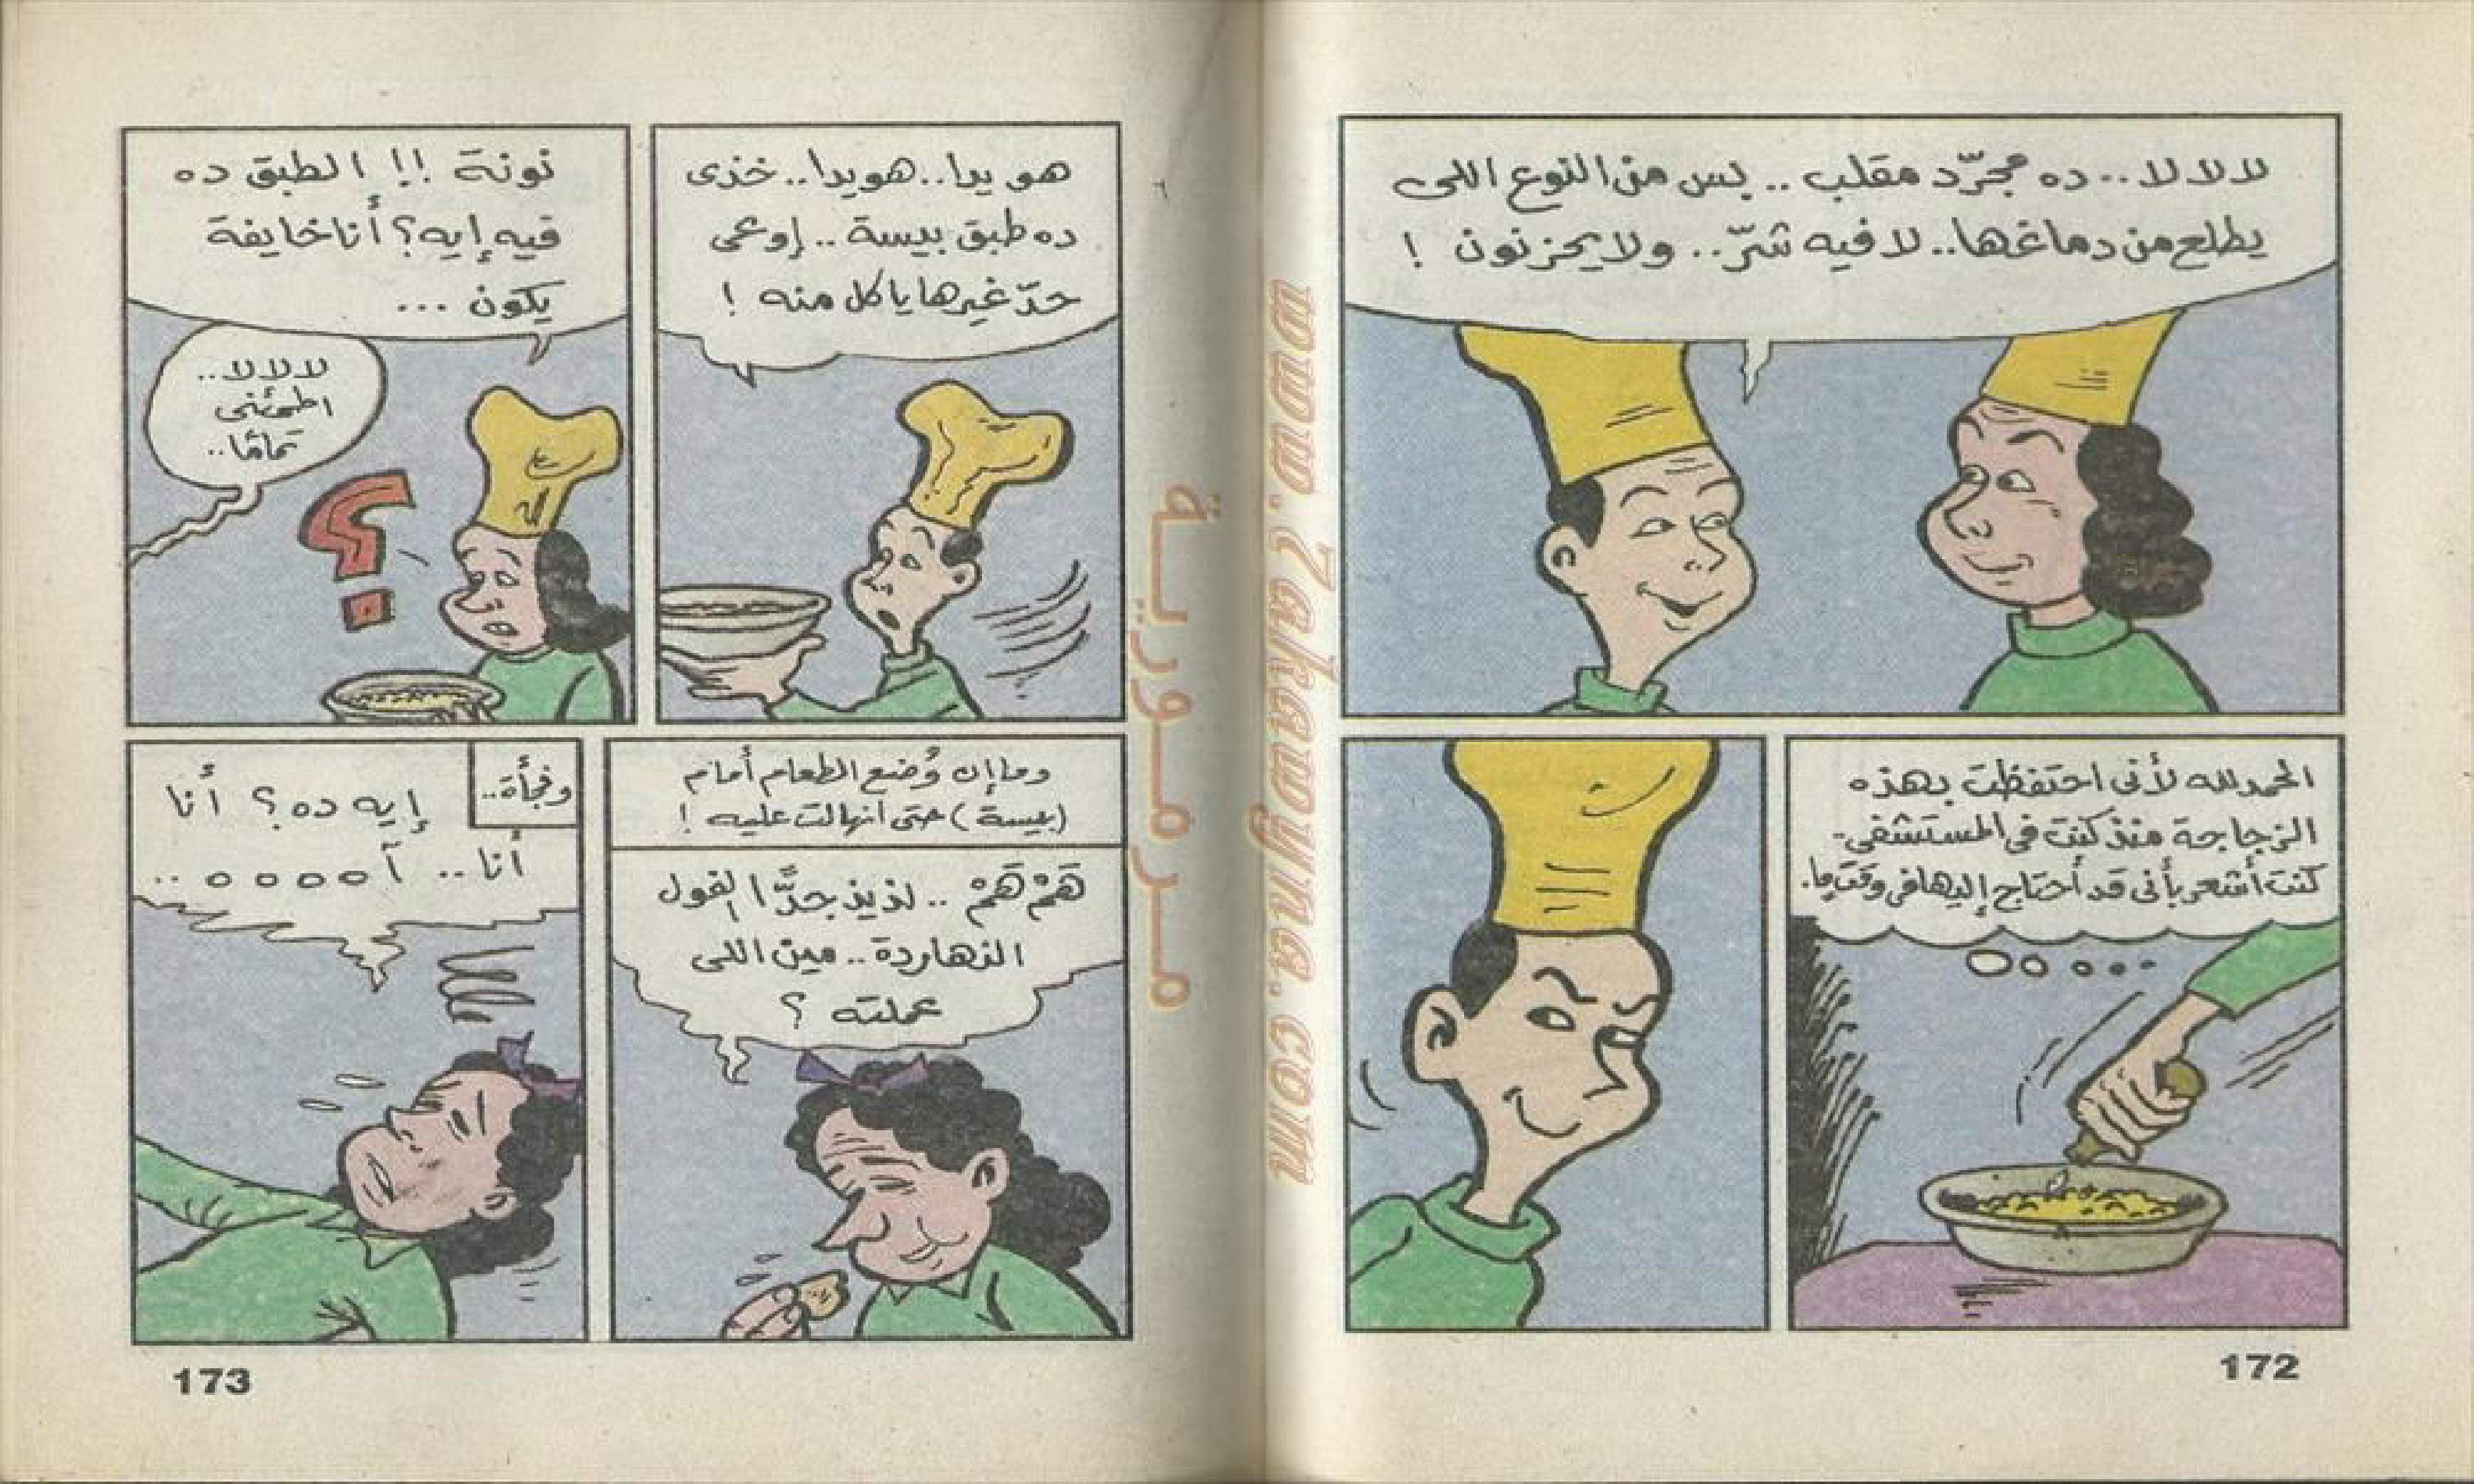 لا لا لا .. ده مجرّد مقلب .. بس من النوع اللى
يطلع من دماغها .. لا فيه شرّ .. ولا يحزنون !
الحمد لله لأنى احتفظت بهذه
الزجاجة منذ كنت فى المستشفى -
كنت أشعر بأنى قد أحتاج إليها فى وقت ما .
172
هويدا .. هويدا .. خذى
ده طبق بيسة .. إوعى
حدّ غيرها ياكل منه !
نونة !! الطبق ده
فيه إيه ؟ أنا خايفة
يكون ...
لا لا لا ..
اطمئنى
تمامًا ..
وما إن وُضع الطعام أمام
(بيسة) حتى انهالت عليه !
هَمْ هَمْ .. لذيذ جدًّا الفول
النهاردة .. مين اللى
عملته ؟
وفجأة ..
إيه ده ؟ أنا
أنا .. آ ه ه ه ه ..
173
مرمورية
www.Zakawyna.com